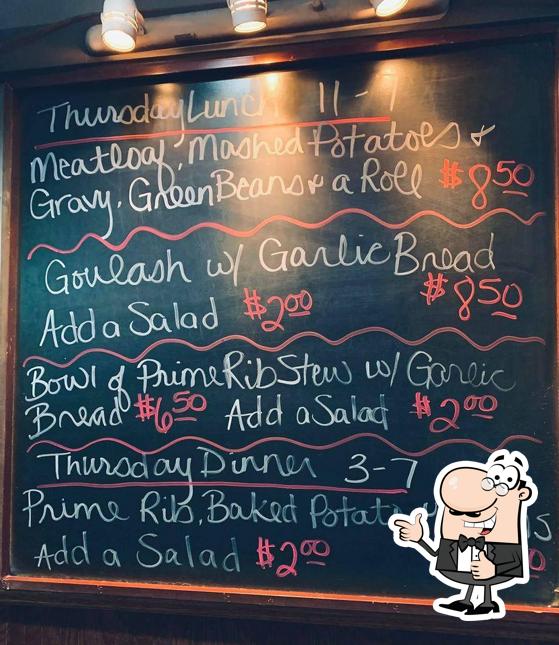 Thursday Lunch 11-7
Meatloaf, Mashed Potatoes &
Gravy, Green Beans & a Roll $8.50
Goulash w/ Garlic Bread
$8.50
Add a Salad $2.00
Bowl of Prime Rib Stew w/ Garlic
Bread $6.50 Add a Salad $2.00
Thursday Dinner 3-7
Prime Rib, Baked
Add a Salad $2.00